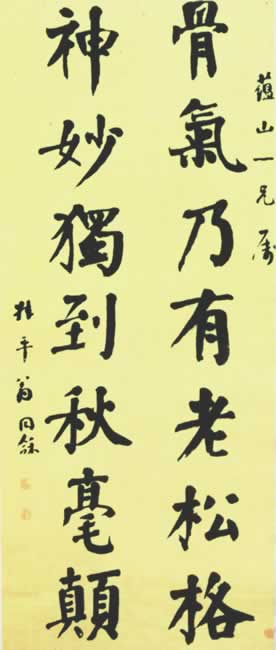 蕴山一兄属
骨氣乃有老松格
神妙獨到秋毫顛
瓶平翁同龢